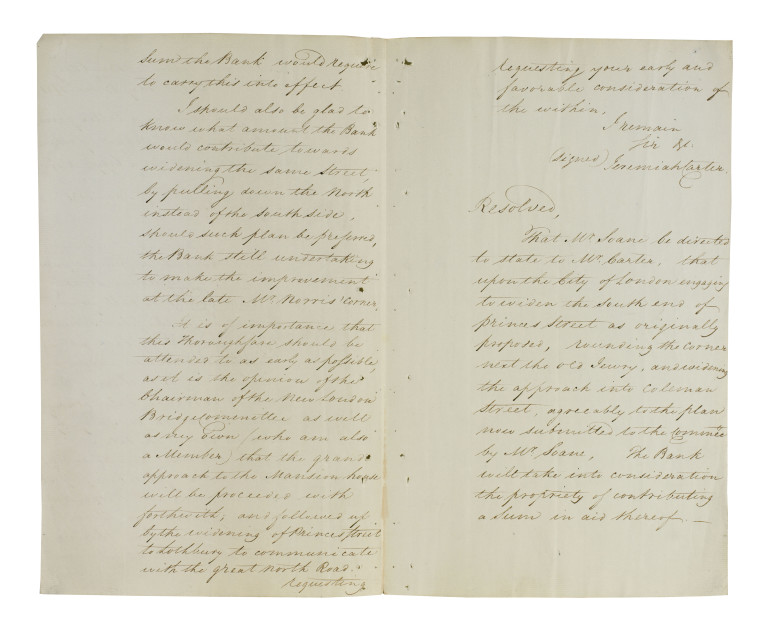 Sum the Bank would require
to carry this into effect
I should also be glad to
know what amount the Bank
would contribute towards
widening the same Street,
by pulling down the North
instead of the South side,
should such plan be preferred,
the Bank still undertaking
to make the improvement
at the late Mr. Norris' corner.
It is of importance that
this Thoroughfare should be
attended to as early as possible,
as it is the opinion of the
Chairman of the New London
Bridge Committee as well
as my own (who am also
a Member) that the grand
approach to the Mansion house
will be proceeded with
forthwith; and followed up
by the widening of Princes Street
to Lothbury to communicate
with the great North Road.
requesting
requesting your early and
favorable consideration of
the within,
I remain
Sir &c.
(Signed) Jeremiah Carter.
Resolved,
That Mr. Soane be directed
to state to Mr. Carter, that
upon the City of London engaging
to widen the South end of
Princes Street as originally
proposed, rounding the corner
next the Old Jewry, and widening
the approach into Coleman
Street, agreeably to the plan
now submitted to the Committee
by Mr. Soane, The Bank
will take into consideration
the propriety of contributing
a Sum in aid thereof. —